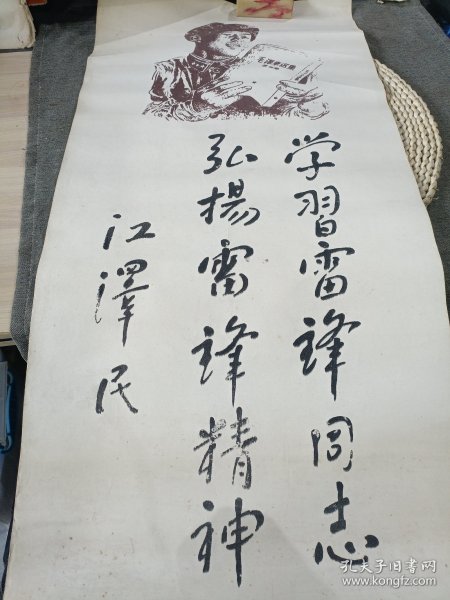 学習雷锋同志
弘揚雷锋精神
江澤民
孔夫子旧书网
www.kongfz.com